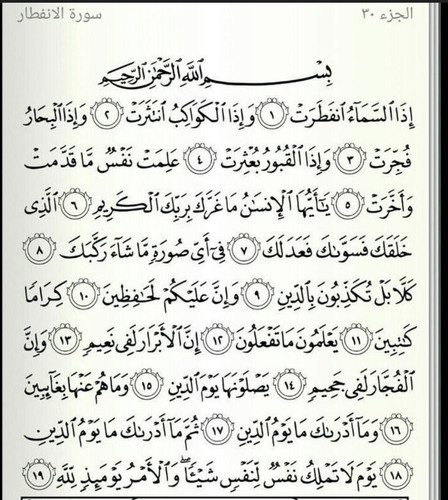 الجزء ٣٠ سورة الانفطار
بِسْمِ اللَّهِ الرَّحْمَٰنِ الرَّحِيمِ
إِذَا السَّمَاءُ انفَطَرَتْ ١ وَإِذَا الْكَوَاكِبُ انتَثَرَتْ ٢ وَإِذَا الْبِحَارُ
فُجِّرَتْ ٣ وَإِذَا الْقُبُورُ بُعْثِرَتْ ٤ عَلِمَتْ نَفْسٌ مَّا قَدَّمَتْ
وَأَخَّرَتْ ٥ يَٰأَيُّهَا الْإِنسَٰنُ مَا غَرَّكَ بِرَبِّكَ الْكَرِيمِ ٦ الَّذِى
خَلَقَكَ فَسَوَّىٰكَ فَعَدَلَكَ ٧ فِىٓ أَىِّ صُورَةٍ مَّا شَآءَ رَكَّبَكَ ٨
كَلَّا بَلْ تُكَذِّبُونَ بِالدِّينِ ٩ وَإِنَّ عَلَيْكُمْ لَحَٰفِظِينَ ١٠ كِرَامًا
كَٰتِبِينَ ١١ يَعْلَمُونَ مَا تَفْعَلُونَ ١٢ إِنَّ الْأَبْرَارَ لَفِى نَعِيمٍ ١٣ وَإِنَّ
الْفُجَّارَ لَفِى جَحِيمٍ ١٤ يَصْلَوْنَهَا يَوْمَ الدِّينِ ١٥ وَمَا هُمْ عَنْهَا بِغَآئِبِينَ
١٦ وَمَآ أَدْرَىٰكَ مَا يَوْمُ الدِّينِ ١٧ ثُمَّ مَآ أَدْرَىٰكَ مَا يَوْمُ الدِّينِ
١٨ يَوْمَ لَا تَمْلِكُ نَفْسٌ لِّنَفْسٍ شَيْـًٔا ۖ وَالْأَمْرُ يَوْمَئِذٍ لِّلَّهِ ١٩